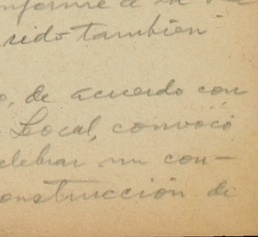 nforme a la
sido también
o, de acuerdo con
Local, convocó
elebrar un con-
onstrucción de